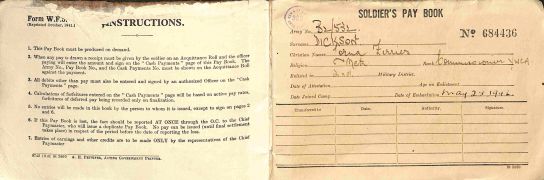 Form W.F.5.
(Reprinted October, 1941.)
INSTRUCTIONS.
1. This Pay Book must be produced on demand.
2. When any pay is drawn a receipt must be given by the soldier on an Acquittance Roll and the officer
paying will enter the amount and sign on the "Cash Payments" page of this Pay Book. The
Army No., Pay Book No., and the Cash Payments No. must be shown on the Acquittance Roll
against the payment.
3. All debits other than pay must also be entered and signed by an authorized Officer on the "Cash
Payments" page.
4. Calculations of forfeitures entered on the "Cash Payments" page will be based on active pay rates,
forfeiture of deferred pay being recorded only on finalization.
5. No entries will be made in this book by the person to whom it is issued, except to sign on pages 2
and 6.
6. If this Pay Book is lost, the fact should be reported AT ONCE through the O.C. to the Chief
Paymaster, who will issue a duplicate Pay Book. No pay can be issued (until final settlement
takes place) in respect of the period before the date of reporting the loss.
7. Entries of earnings and other credits are to be made ONLY by the representatives of the Chief
Paymaster
SOLDIER'S PAY BOOK
Army No.
No 684436
Surname DICKSON
Christian Names
Religion Meth Rank Commissioner YWCA
Enlisted in Military District.
Date of Attestation Age on Enlistment
Date Joined Camp Date of Embarkation May 23 1944
Transferred to Date. Authority. Signature.